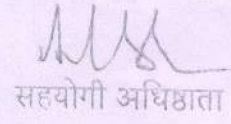 सहयोगी अधिष्ठाता